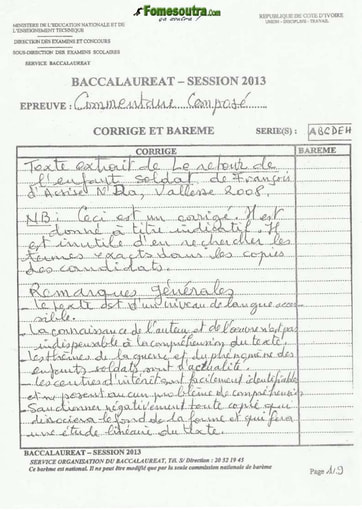 Fomesoutra.com
ça soutra !
MINISTERE DE L'EDUCATION NATIONALE ET DE
L'ENSEIGNEMENT TECHNIQUE
DIRECTION DES EXAMENS ET CONCOURS
SOUS-DIRECTION DES EXAMENS SCOLAIRES
SERVICE BACCALAUREAT
REPUBLIQUE DE COTE D'IVOIRE
UNION – DISCIPLINE - TRAVAIL
BACCALAUREAT – SESSION 2013
EPREUVE : Commentaire Composé
CORRIGE ET BAREME SERIE(S) : ABCDEH
CORRIGE BAREME
Texte extrait de Le retour de
l'enfant soldat de François
d'Assise N'Da, Vallesse 2008.
NB : Ceci est un corrigé. Il est
donné à titre indicatif. Il
est inutile d'en rechercher les
termes exacts dans les copies
des candidats.
Remarques générales
- Le texte est d'un niveau de langue acces-
sible.
- La connaissance de l'auteur et de l'œuvre n'est pas
indispensable à la compréhension du texte.
- Les thèmes de la guerre et du phénomène des
enfants soldats sont d'actualité.
- Les centres d'intérêt sont facilement identifiables
et ne posent aucun problème de compréhension
- Sanctionner négativement toute copie qui
dissociera le fond de la forme et qui fera
une étude linéaire du texte.
BACCALAUREAT – SESSION 2013
SERVICE ORGANISATION DU BACCALAUREAT, Tél. S/ Direction : 20 32 19 45
Ce barème est national. Il ne peut être modifié que par la seule commission nationale de barème
Page 1/9